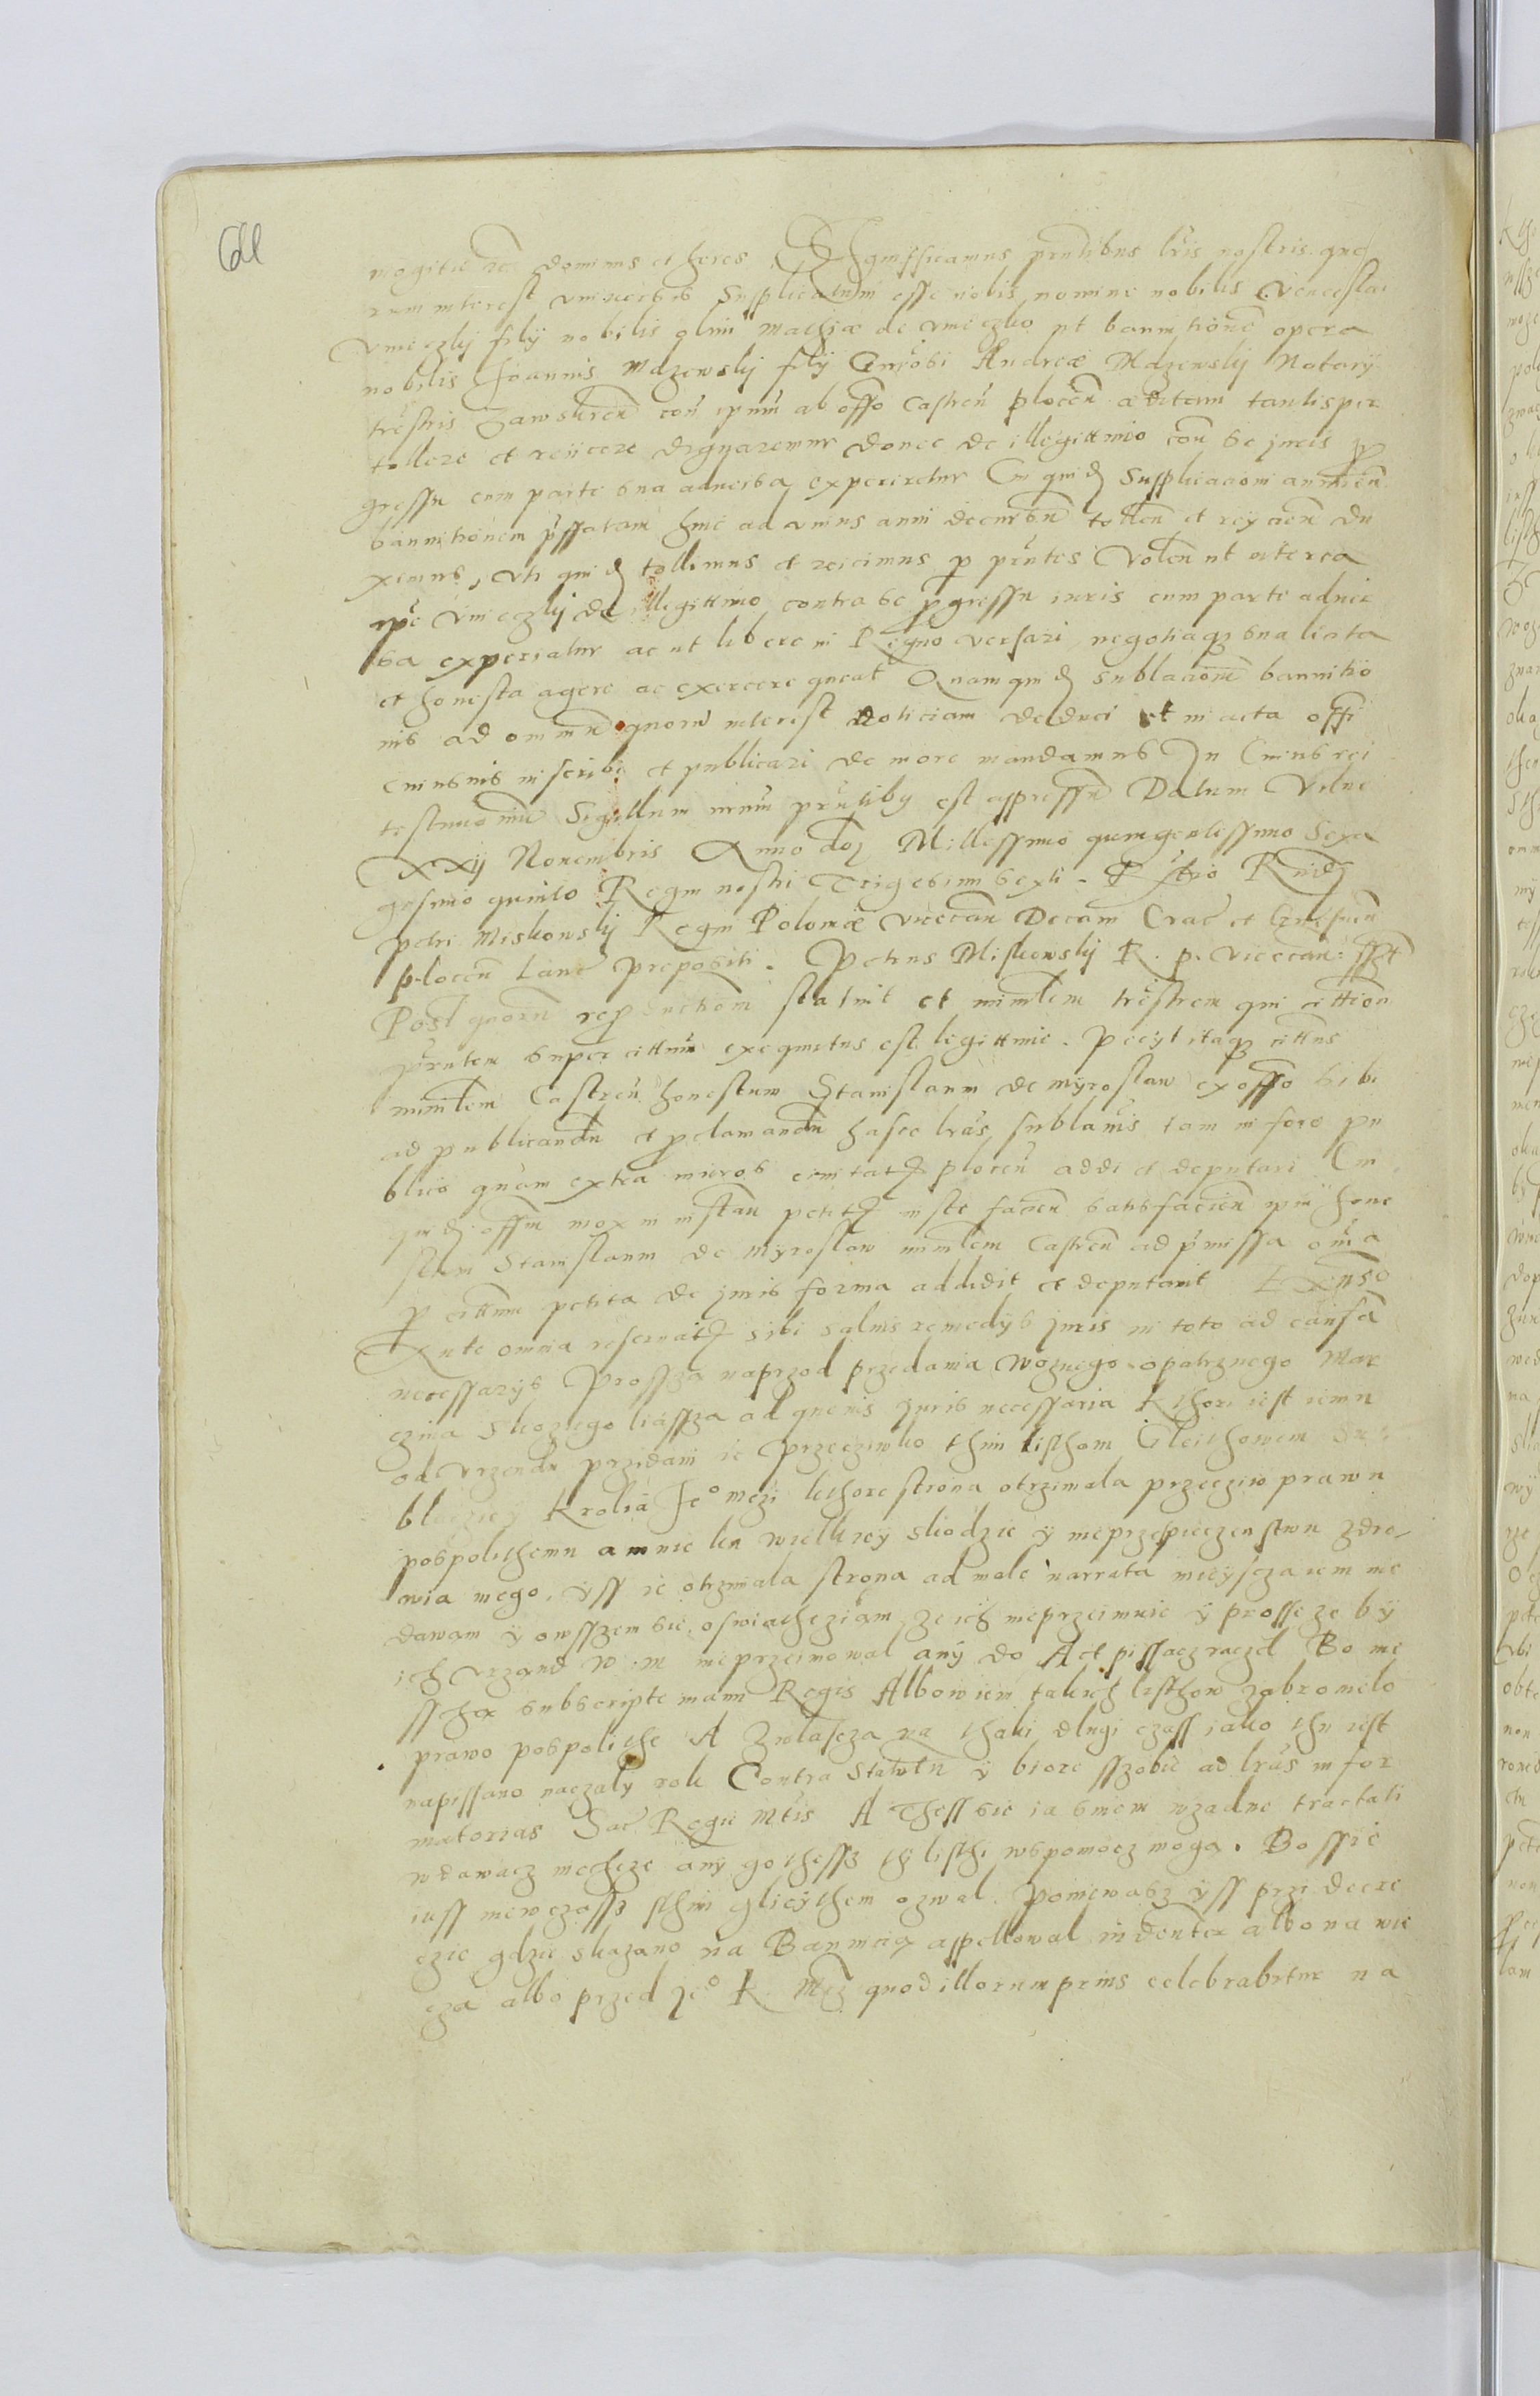 mogitie etc dominus et heres Significamus prntibus lris nostris quo
rum interest vniuersis Supplicatum esse nobis nomine nobilis Venceslai
Vmieczkÿ filÿ nobilis olim Mathiæ de Vmieczko vt bannitionē opera
nobilis Joannis Mdzewskÿ filÿ Gnrosi Andreæ Mdzewskÿ Notarÿ
trestris Zawskren con ipm ab offo Castren plocen aditam tantisper
tollere et reiicere dignaremur donec de illegittimo con se juris p
gressu cum parte sua aduersa experiretur Cui quid Supplicacioni annuen
bannitionem pssatam hinc ad vnius anni decursum tollen et reÿcien du
ximus, vti quid tollimus et reicimus p prntes Volen vt interea
ipse Vmieczkÿ de illegittimo contra se pgressu iuris cum parte aduer
sa experiatur ac vt libere in Regno versari negotiaq sua licita
et honesta agere ac exercere queat Quam quid sublacionē bannitio
nis ad omnium quorum interest noticiam deduci et in acta offi
cuiusuis inscribi et publicari de more mandamus In Cuius rei
testimonium Sigillum nrum prntiby est appressū Datum Vilne
XXIJ Nouembris Anno doj Millessimo quingentessimo Sexa
gesimo quinto Regni nostri Trigesimi sexti. Rltio Rndj
Petri Miskowskÿ Regni Poloniæ vicecan Decani Crac et Gnesnen
plocen Lanc prepositi. Petrus Miskowskÿ R. p. vicecan: sszt
Post quorū reproductionem statuit et minrlem trestrem qui cittion
prntem super cittum exequutus est legittime. Pecÿt itaq cittus
minrlem Castren honestum Stanislaum de Myroslaw ex offo sibi
ad publicandū et pclamandū hasce lras sublanis tam in foro pu
blico quam extra muros ciuitatis plocen addi et deputari Cui
quid offm mox in instan petitis iste facien satisfacien ipm hone
stum Stanislaum de Myroslaw minrlem Castren ad pmissa oma
p cittum petita de juris forma addidit et deputauit
Ante omnia reseruatis sibi saluis remedÿs juris in toto ad causā
necessarÿs Prossza naprzod przedania woznego opatrznego Mar
czina Skoznego liassza ad queuis juris necessaria kthori iest iemu
od vrzendu przidani ie przecziwko thim listhom Gleithowem Su
blaczieÿ Krolia Jeº mczi kthore strona otrzimala przecziw prawu
pospolithemu a mnie ku wielkieÿ skodzie ÿ nieprzespieczenstwu zdro
wia mego, ÿss ie otrzimala strona ad male narrata mieÿscza iem nie
dawam ÿ owsszem sie oswiathcziam, ze ich nieprzeimuie ÿ prosse ze bÿ
ich vrzand W. m nieprzeimowal anÿ do Act pissacz raczel Bo nie
ssthą subscripte manu Regis Albowiem takich listhow zabronilo
prawo pospolithe A zwlascza na thaki dlugi czass iako thu iest
napissano naczalÿ rok Contra Statutū ÿ biore sszobie ad lras infor
matorias Sac Regie Mtis A Thess sie ia snim wzadne tractati
wdawacz niechcze anÿ go thessz tÿ listhi wspomocz moga. Bo ssie
iuss niewczassz sthim glieÿthem ozwal. Poniewasz ÿss przi decre
czie gdzie skazano na Banniczią appellowal indenter albo na wie
cza albo przed Jeº K. Mcz quod illorum prius celebrabitur na